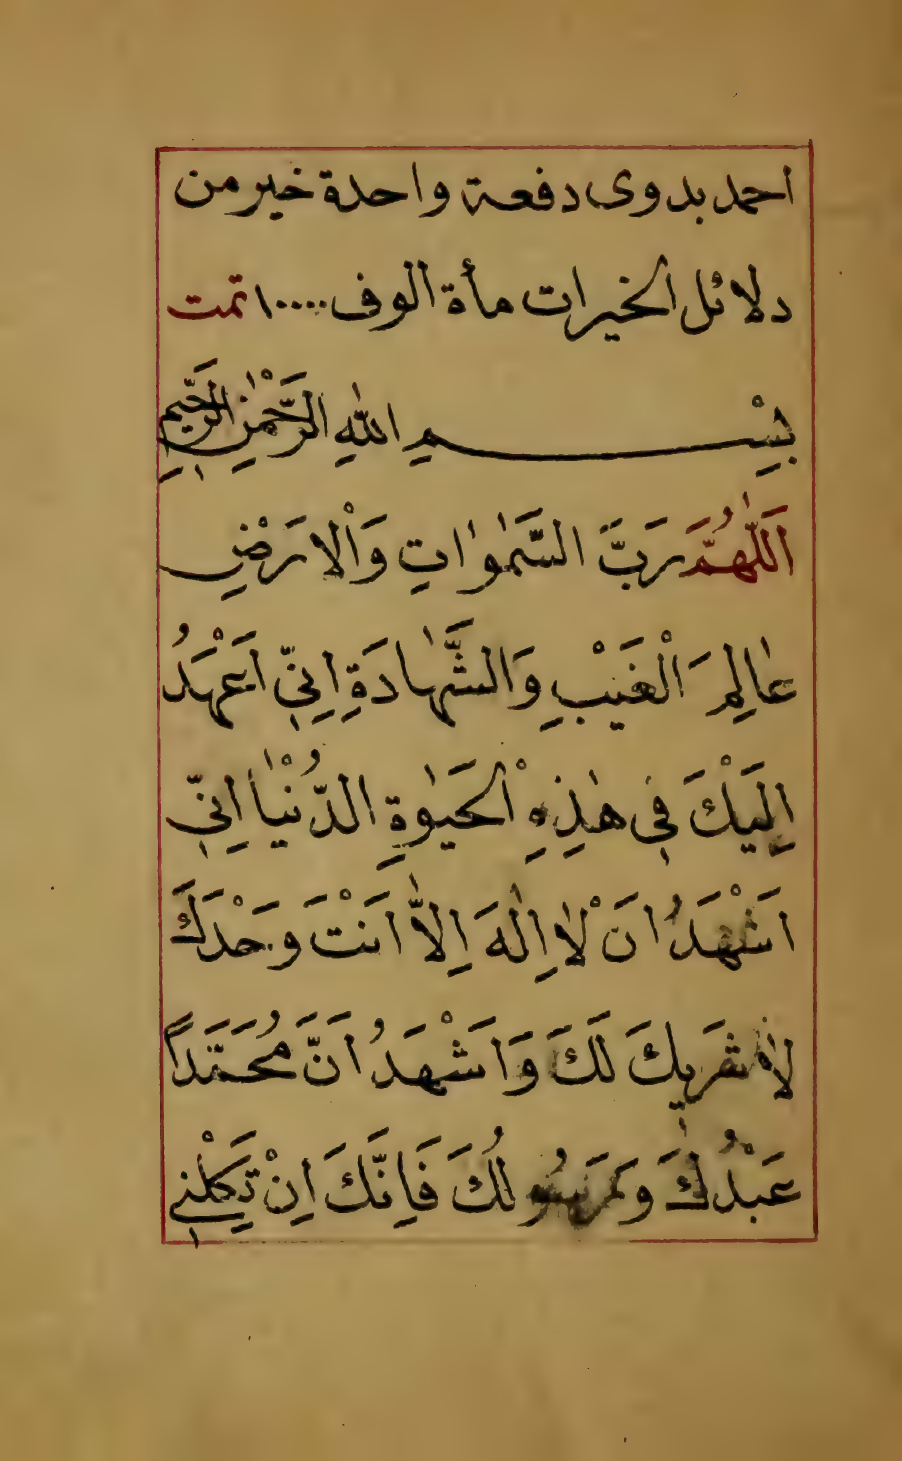 احمد بدوى دفعة واحدة خير من
دلائل الخيرات مأة الوف ١٠٠٠٠٠ تمت
بِسْمِ اللّٰهِ الرَّحْمٰنِ الرَّحِيمِ
اَللّٰهُمَّ رَبَّ السَّمٰوٰاتِ وَالْاَرَضِ
عٰالِمِ الْغَيْبِ وَالشَّهٰادَةِ اِنِّي اَعْهَدُ
اِلَيْكَ فِي هٰذِهِ الْحَيٰوةِ الدُّنْيٰا اِنِّي
اَشْهَدُ انَ لْاٰ اِلٰهَ اِلاّٰ اَنْتَ وَحْدَكَ
لاٰ شَرِيكَ لَكَ وَاَشْهَدُ اَنَّ مُحَمَّدًا
عَبْدُكَ وَرَسُولُكَ فَاِنَّكَ اِنْ تَكِلْنِي